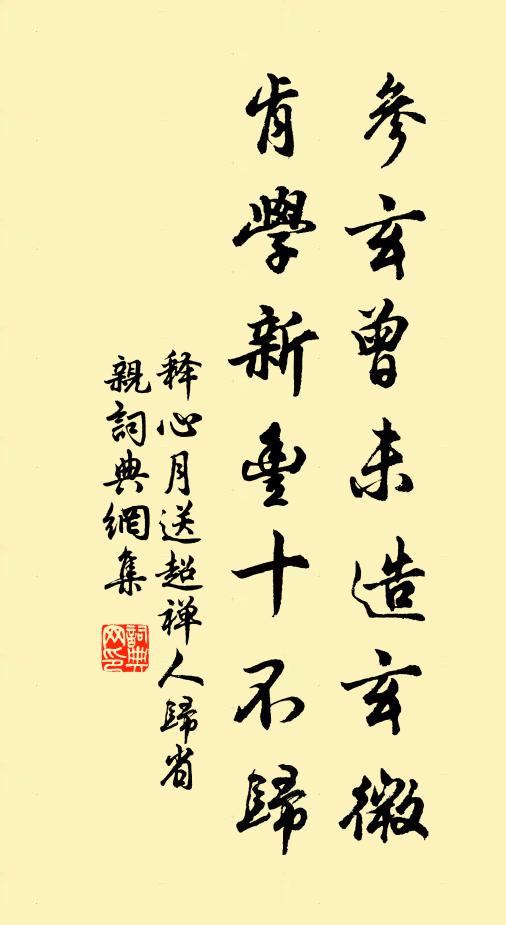 參玄曾未造玄微
肯學新豐十不歸
释心月送超禅人歸省
親詞典網集
詞典
网印